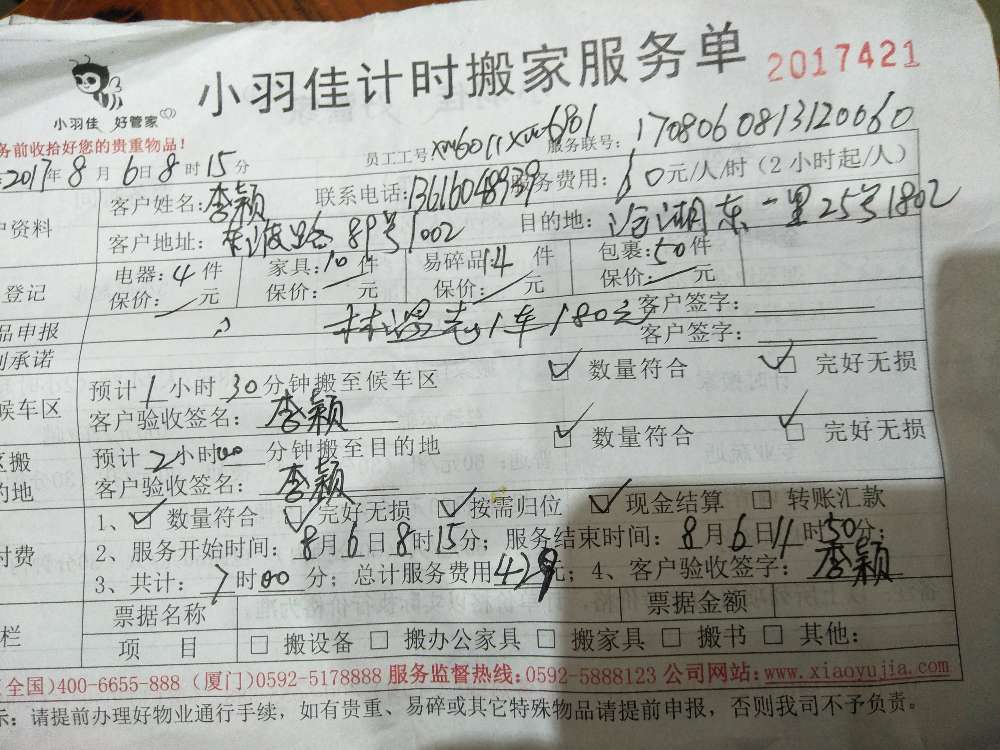 小羽佳计时搬家服务单 2017421
小羽佳 好管家
务前收拾好您的贵重物品!
员工工号: 服务联号: 1708060813120060
2017年8月6日8时15分
户资料 客户姓名:李颖 联系电话: 服务费用:60元/人/时(2小时起/人)
客户地址: 东渡路89号1002 目的地: 沧湖东一里25号1802
登记 电器:4件 家具:10件 易碎品:14件 包裹:50件
保价: 元 保价: 元 保价: 元 保价: 元
品申报 1车180元 客户签字:
别承诺 客户签字:
候车区 预计1小时30分钟搬至候车区 ☑ 数量符合 ☑ 完好无损
客户验收签名: 李颖
区搬 预计2小时00分钟搬至目的地 ☑ 数量符合 ☑ 完好无损
的地 客户验收签名: 李颖
1、☑ 数量符合 ☑ 完好无损 ☑ 按需归位 ☑ 现金结算 □ 转账汇款
付费 2、服务开始时间: 8月6日8时15分; 服务结束时间: 8月6日11时50分;
3、共计: 7时00分; 总计服务费用 元; 4、客户验收签字: 李颖
票据名称 票据金额
栏 项 目 □ 搬设备 □ 搬办公家具 □ 搬家具 □ 搬书 □ 其他:
(全国)400-6655-888 (厦门)0592-5178888 服务监督热线:0592-5888123 公司网站:www.xiaoyujia.com
示: 请提前办理好物业通行手续,如有贵重、易碎或其它特殊物品请提前申报,否则我司不予负责。